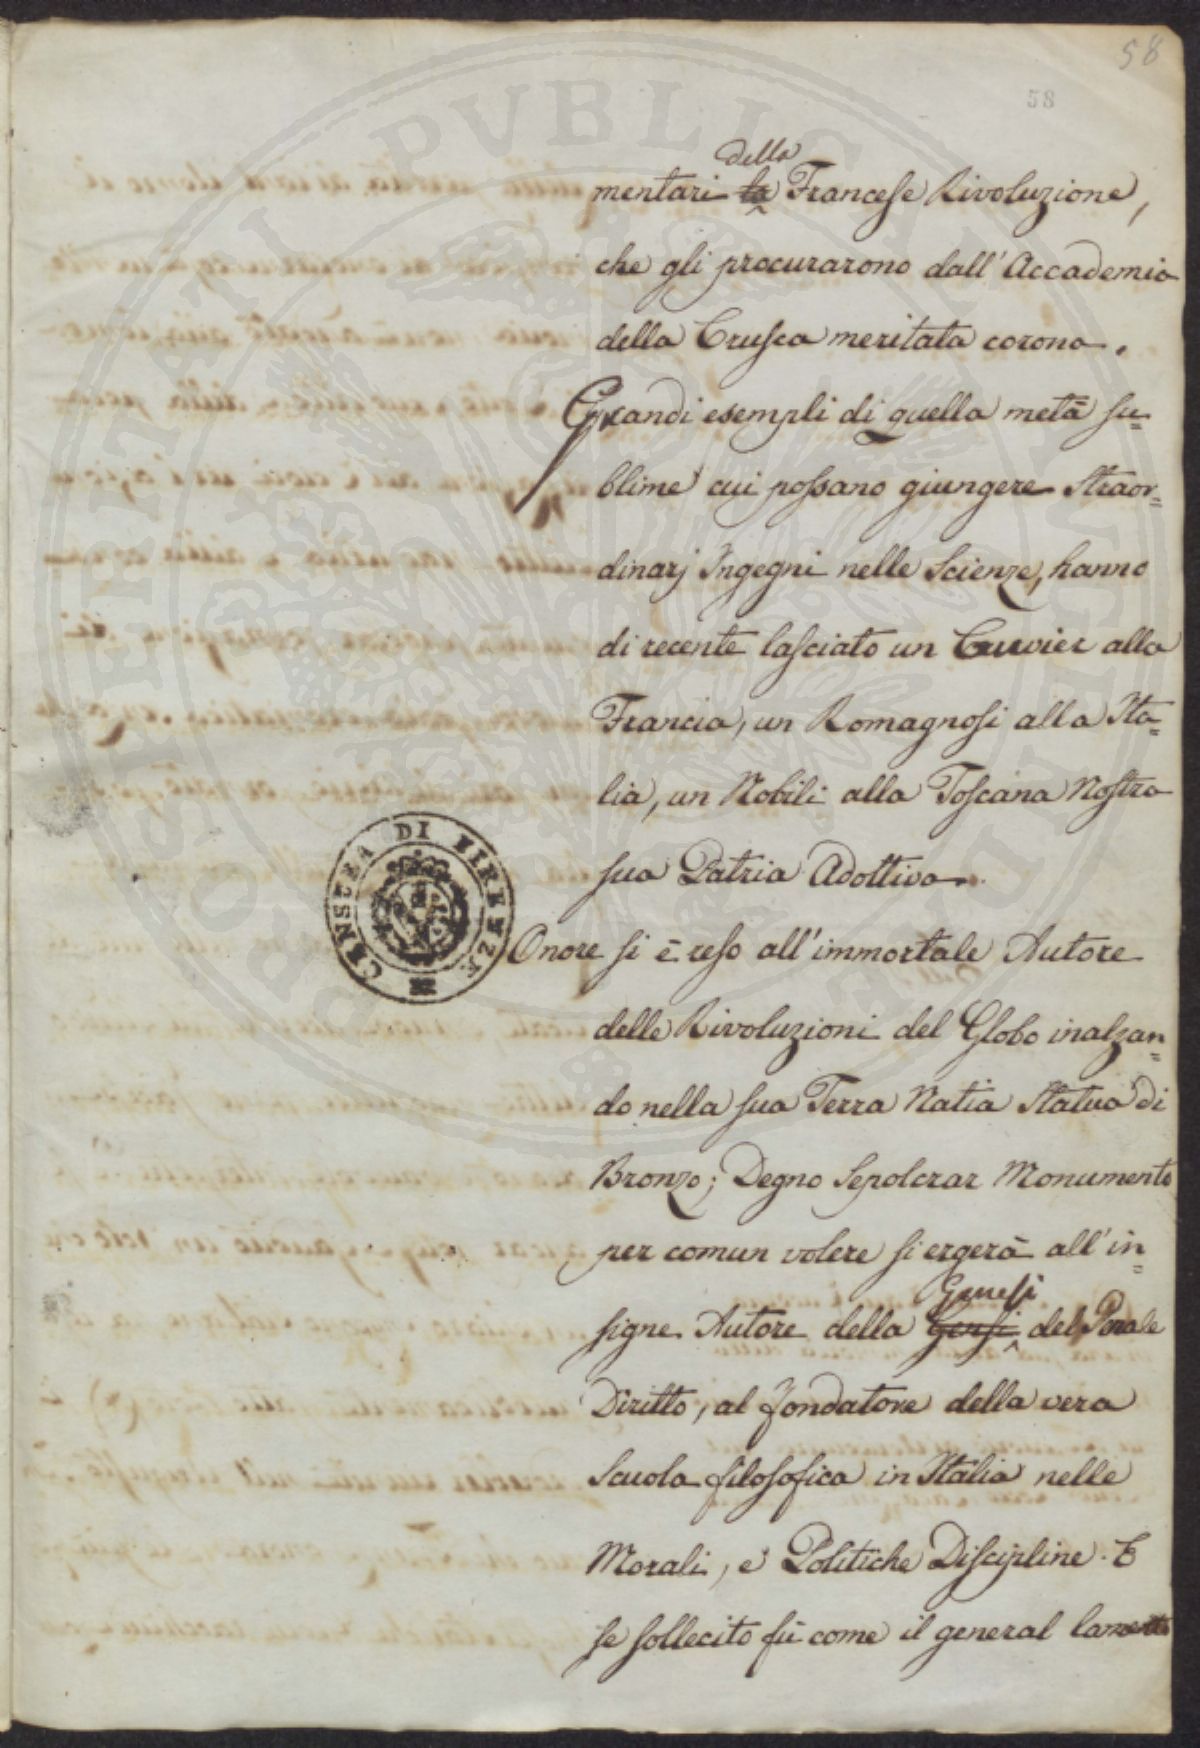 58
58
della
mentari la Francese Rivoluzione,
che gli procurarono dall'Accademia
della Crusca meritata corona.
Grandi esempli di quella metà su=
blime cui possano giungere straor=
dinarj Ingegni nelle Scienze, hanno
di recente lasciato un Cuvier alla
Francia, un Romagnosi alla Ita=
lia, un Nobili alla Toscana Nostra
sua Patria Adottiva.
CENSURA DI FIRENZE
Onore si è reso all'immortale Autore
delle Rivoluzioni del Globo inalzan=
do nella sua Terra Natia Statua di
Bronzo; Degno Sepolcrar Monumento
per comun volere si ergerà all'in=
Genesi
signe Autore della Gensi del Penale
Diritto, al fondatore della vera
Scuola filosofica in Italia nelle
Morali, e Politiche Discipline. E
se sollecito fù come il general lamento
PROSPERITATI PVBLICAE AVGENDAE